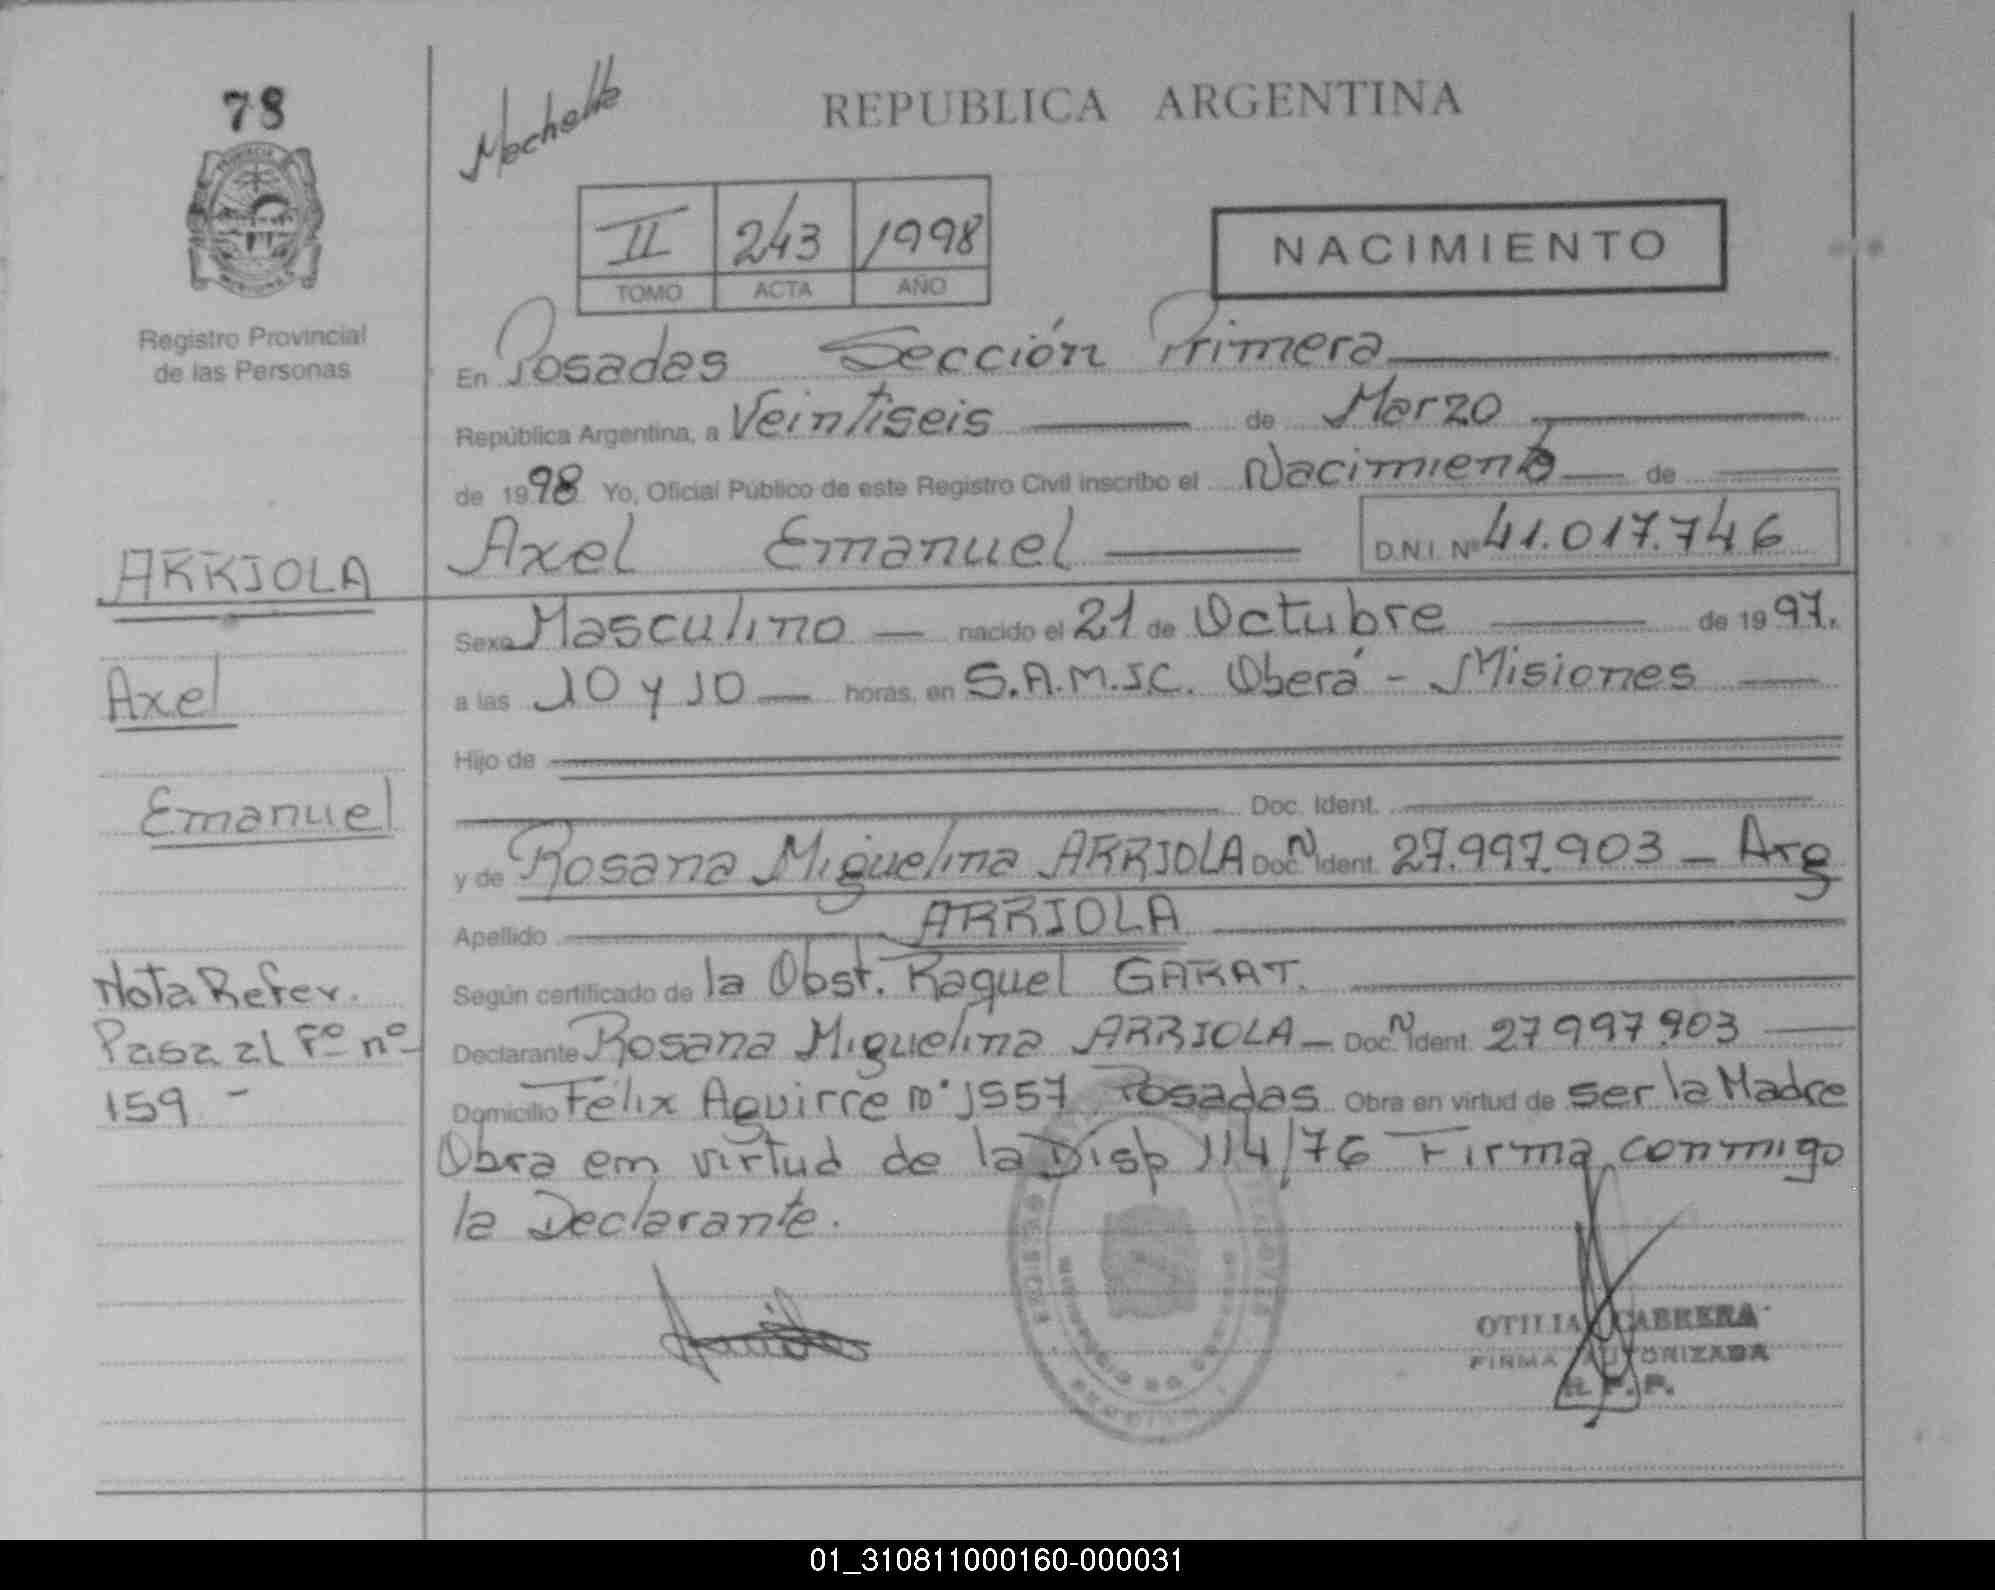 78
Mochette
REPUBLICA ARGENTINA
II 243 1998
TOMO ACTA AÑO
NACIMIENTO
Registro Provincial
de las Personas
En Posadas Sección Primera
República Argentina, a Veintiseis de Marzo
de 1998 Yo, Oficial Público de este Registro Civil inscribo el Nacimiento de
Axel Emanuel D.N.I. Nº 41.017.746
ARRIOLA
Axel
Emanuel
Sexo Masculino nacido el 21 de Octubre de 1997.
a las 10 y 10 horas, en S.A.M.I.C. Oberá - Misiones
Hijo de
Doc. Ident.
y de Rosana Miguelina ARRIOLA Doc. N Ident. 27.997.903 - Arg
Apellido ARRIOLA
Según certificado de la Obst. Raquel GARAT.
Declarante Rosana Miguelina ARRIOLA - Doc. N Ident. 27997.903
Domicilio Félix Aguirre nº 1557 Posadas Obra en virtud de ser la Madre
Obra em virtud de la Disp 114/76 Firma conmigo
la Declarante.
Nota Refer.
Pasa al Fº nº
159 -
OTILIA CABRERA
FIRMA AUTORIZADA
R. P. P.
01_310811000160-000031